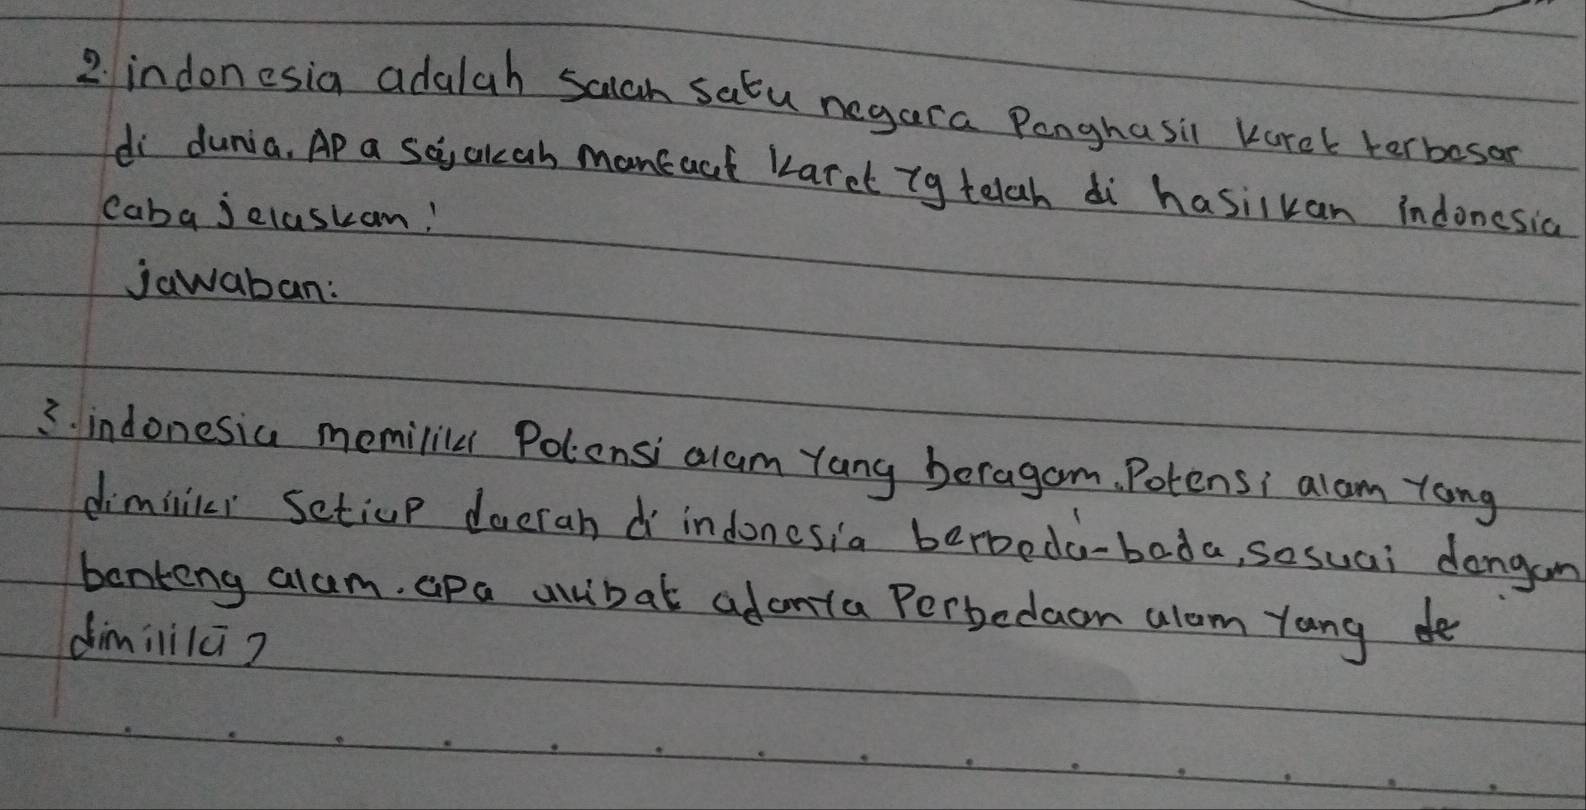 2. indonesia adalah salah satu negara Penghasil karet terbesar
di dunia. APa sajakah manfaat karet yg telah di hasilkan indonesia
caba jelaskan!
jawaban:
3. indonesia memiliki Potensi alam Yang beragam. Potensi alam Yang
dimiliki setiap daerah di indonesia berbeda-beda, sesuai dengan
benteng alam. apa akibat adanya Perbedaan alam Yang
dimiliki?